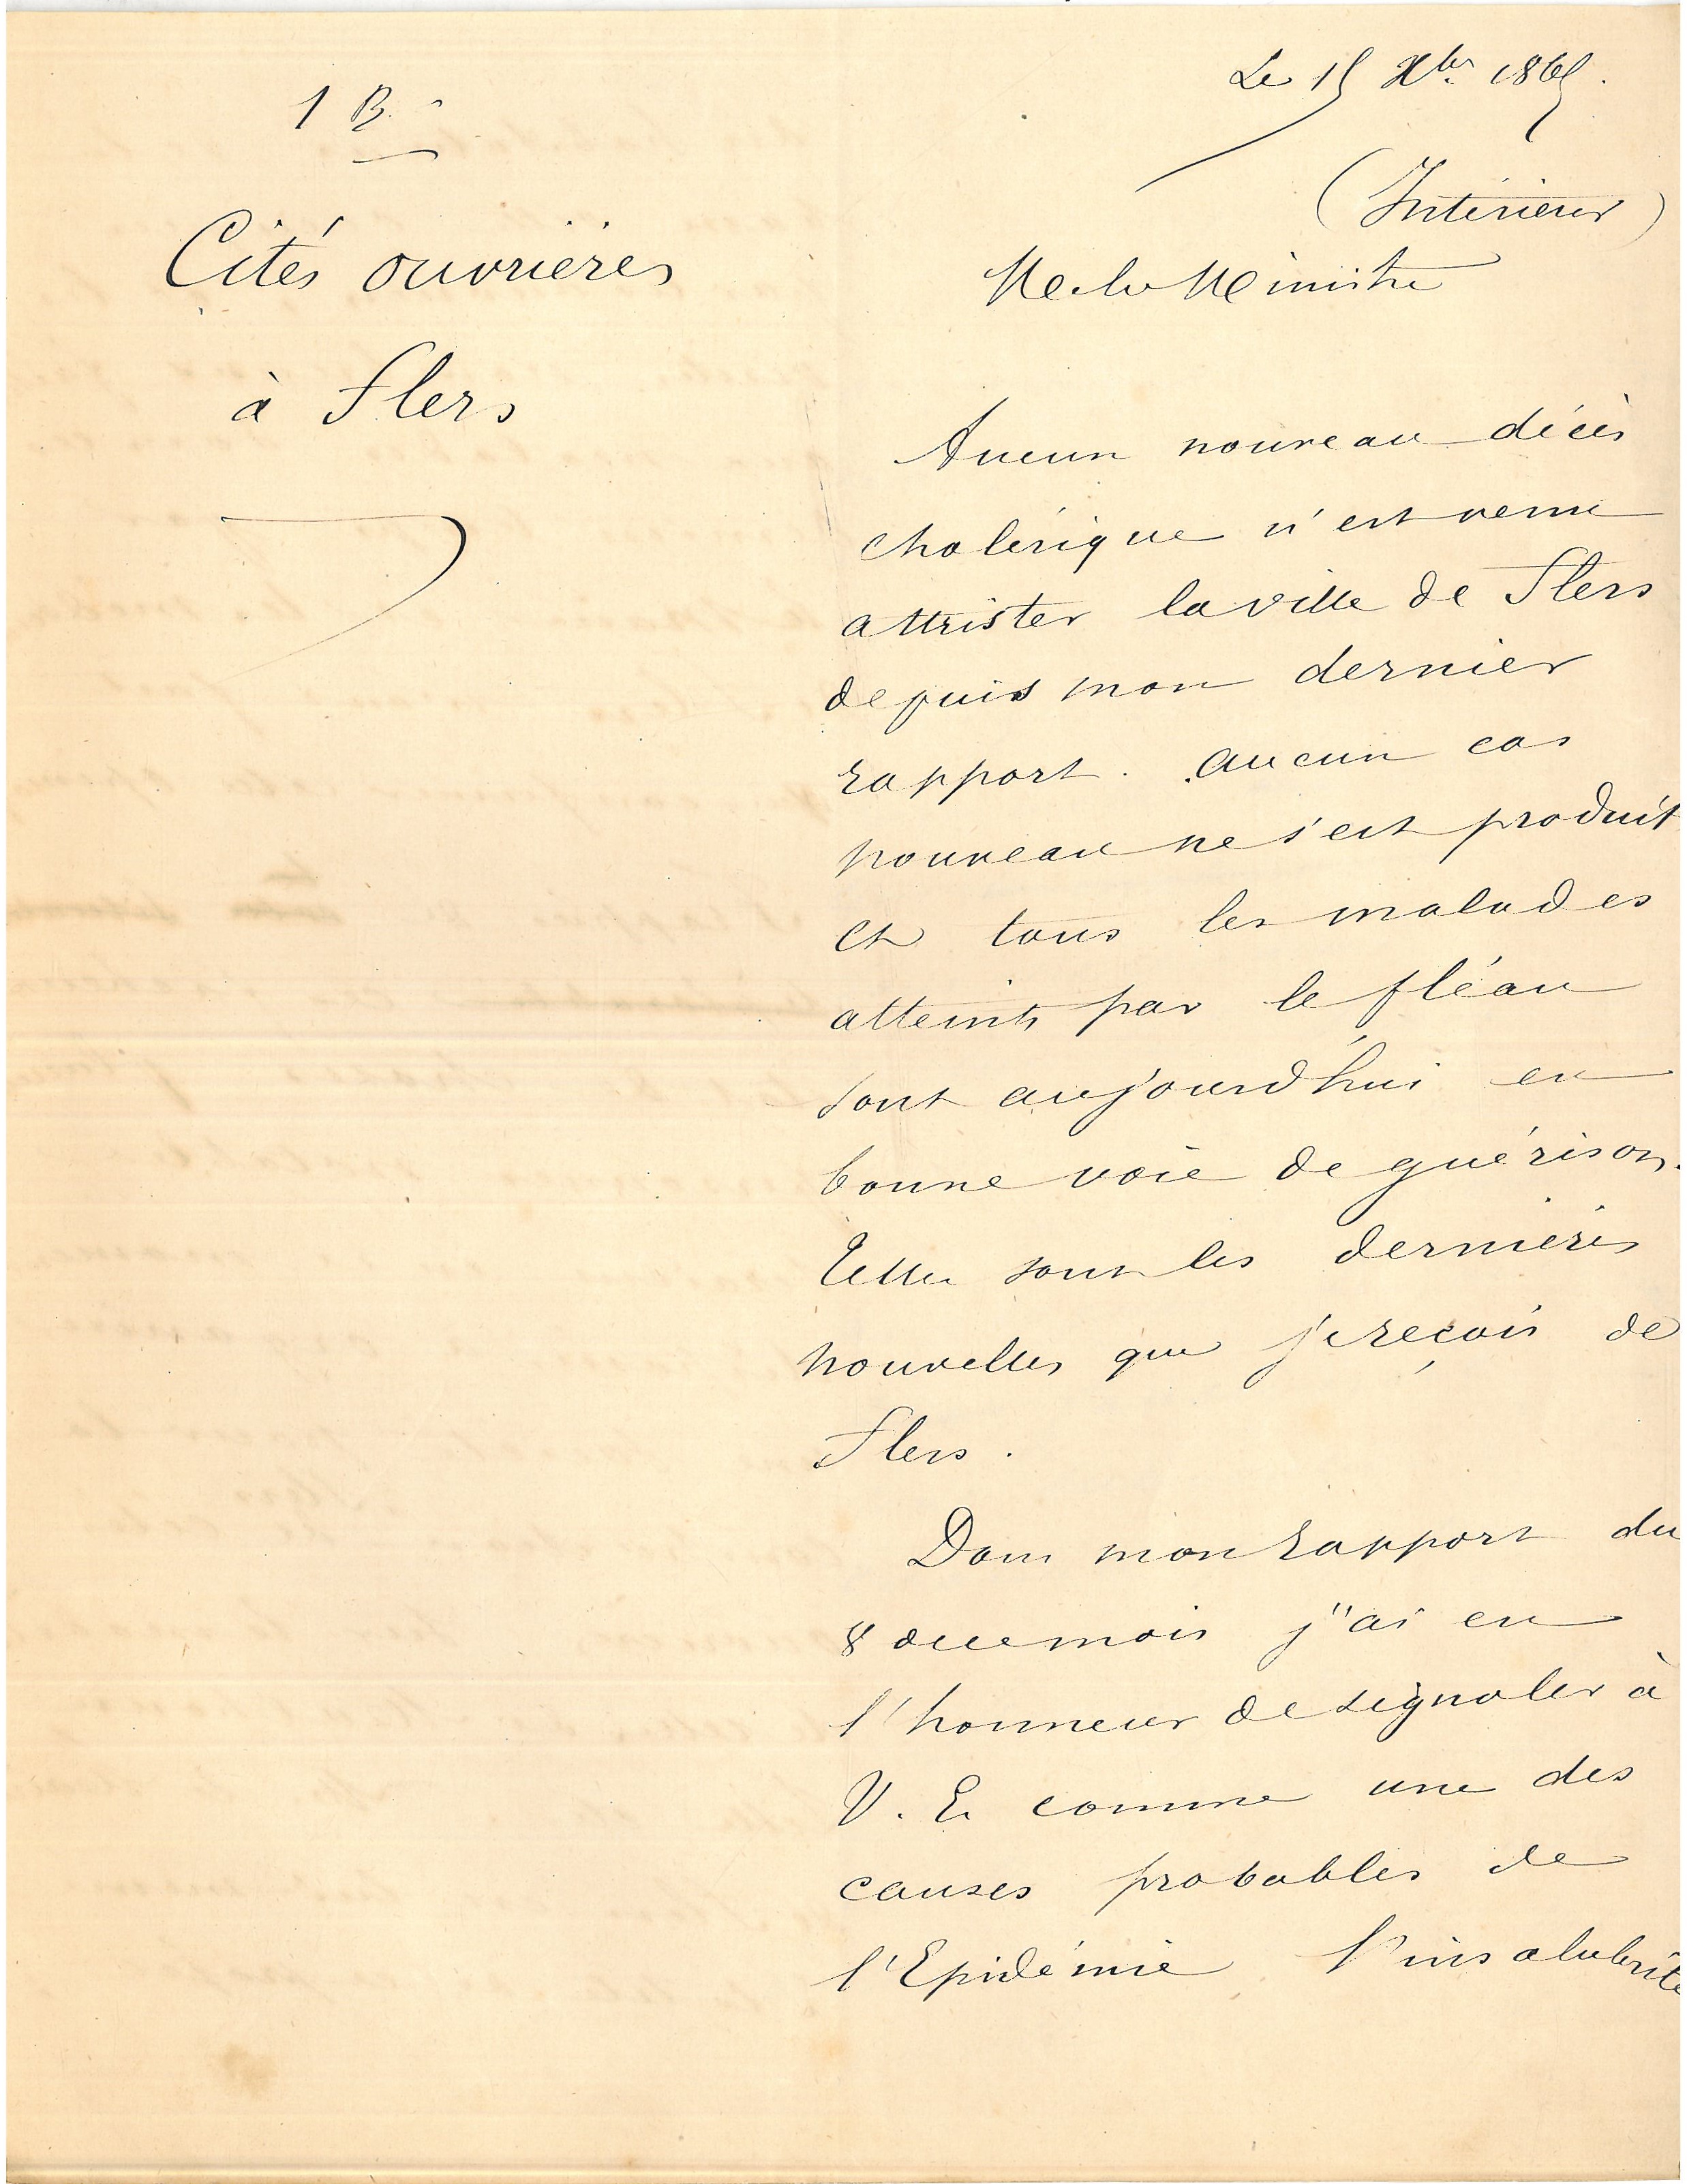 1 B.
Cités ouvrières
à Flers
Le 15 Xbre 1865.
(Intérieur)
M. le Ministre
Aucun nouveau décès
cholérique n'est venu
attrister la ville de Flers
depuis mon dernier
rapport. Aucun cas
nouveau ne s'est produit
et tous les malades
atteints par le fléau
sont aujourd'hui en
bonne voie de guérison.
Telles sont les dernières
nouvelles que je reçois de
Flers.
Dans mon rapport du
8 de ce mois j'ai eu
l'honneur de signaler à
V. E. comme une des
causes probables de
l'Epidémie l'insalubrité